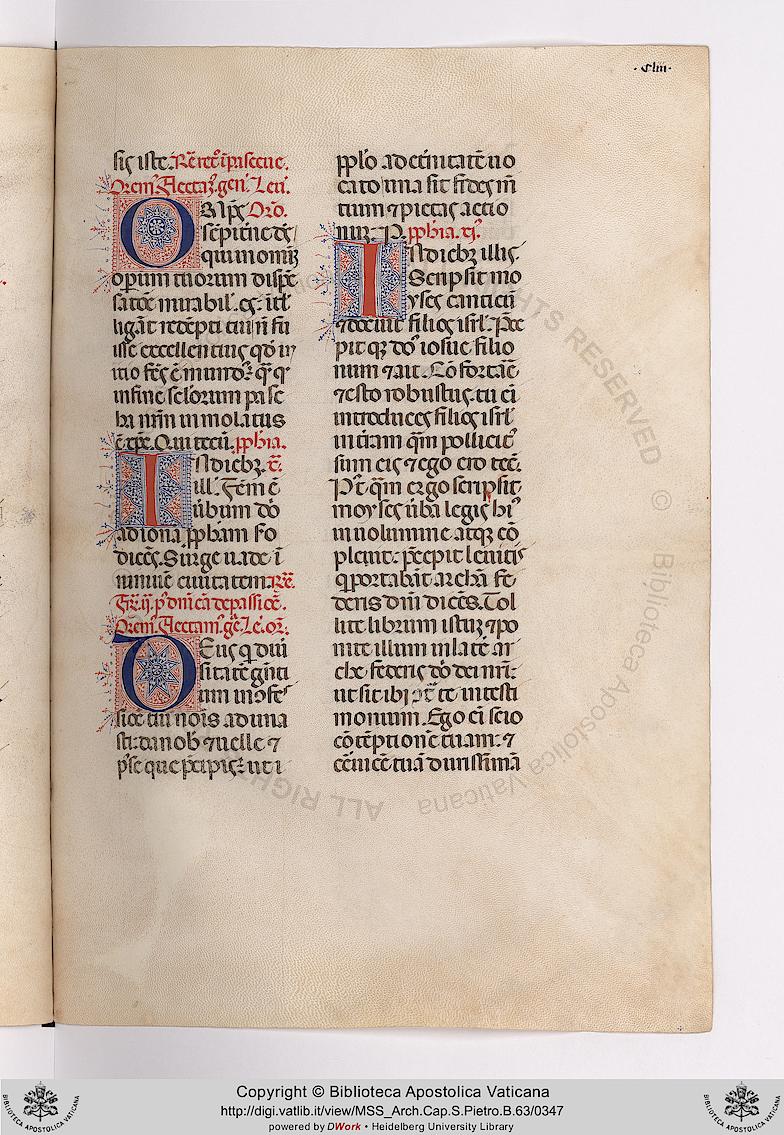 ·Clııı·
sis iste. Rē ret̄ ī pascȥ ue.
Orem⁹. Flectam⁹. gen̄. Leu.
O Ꝫ ıp̄s Oro.
sēpit̄ne dş
qui in om̄iȝ
operum tuorum dispē
satōē mirabil̓. es. ītl̄
ligāt redēpti tui n̄ fu
isse excellentius qd̓ in
itio fc̄s ē mundꝰ. q̄ ꝙ
in fine sclorum pasc
ha nr̄m inmolatus
ē xp̄c. Qui tecū. ꝓph̄ia.
I N dieb₃. t̄.
ill̓. Fc̄m ē
uerbum dō
ad iona ꝓph̄am so
dicēs. Surge uade ī
niniuē ciuitatem. Rē.
Fr̄. ij. p⁹ dn̄icā de passiōē.
Orem⁹. Flectam⁹. gē. Le. or.
D Eus q̓ diui
sitatē gēti
um in ꝯfes
siōē tui noīs aduna
sti: da nob̓ ⁊ uelle ⁊
posse que p̄cipis: ut i
pplo ad et̓nitatē uo
cato una sit fides m̄
tium ⁊ pietas actio
num. P. ꝓph̄ia. iij.
I N dieb₃ illis.
Scripsit mo
yses canticū
⁊ docuit filios isrl̓. Pre
pitq₃ dō iosue filio
num ⁊ ait. Cōfortaē
⁊ esto robustus. tu eī
introduces filios isrl̓
in t̄ram q̄m pollicit⁹
sum eis ⁊ ego ero tec̄.
Pt̓q̄m ergo scripsit
moyses ūba legis hī⁹
in uolumine atq₃ cō
pleuit: p̄cepit leuitis
q̓ portabāt archā fe
deris dn̄i dicēs. Tol
lite librum istuȝ ⁊ po
nite illum in latē ar
che federis dn̄i dei nr̄i:
ut sit ibi ꝯt̓ te in testi
monium. Ego eī scio
cōtēptionē tuam: ⁊
cēuicē tuā durissīmā
ALL RIGHTS RESERVED © Biblioteca Apostolica Vaticana
BIBLIOTECA APOSTOLICA VATICANA
Copyright © Biblioteca Apostolica Vaticana
http://digi.vatlib.it/view/MSS_Arch.Cap.S.Pietro.B.63/0347
powered by DWork • Heidelberg University Library
BIBLIOTECA APOSTOLICA VATICANA